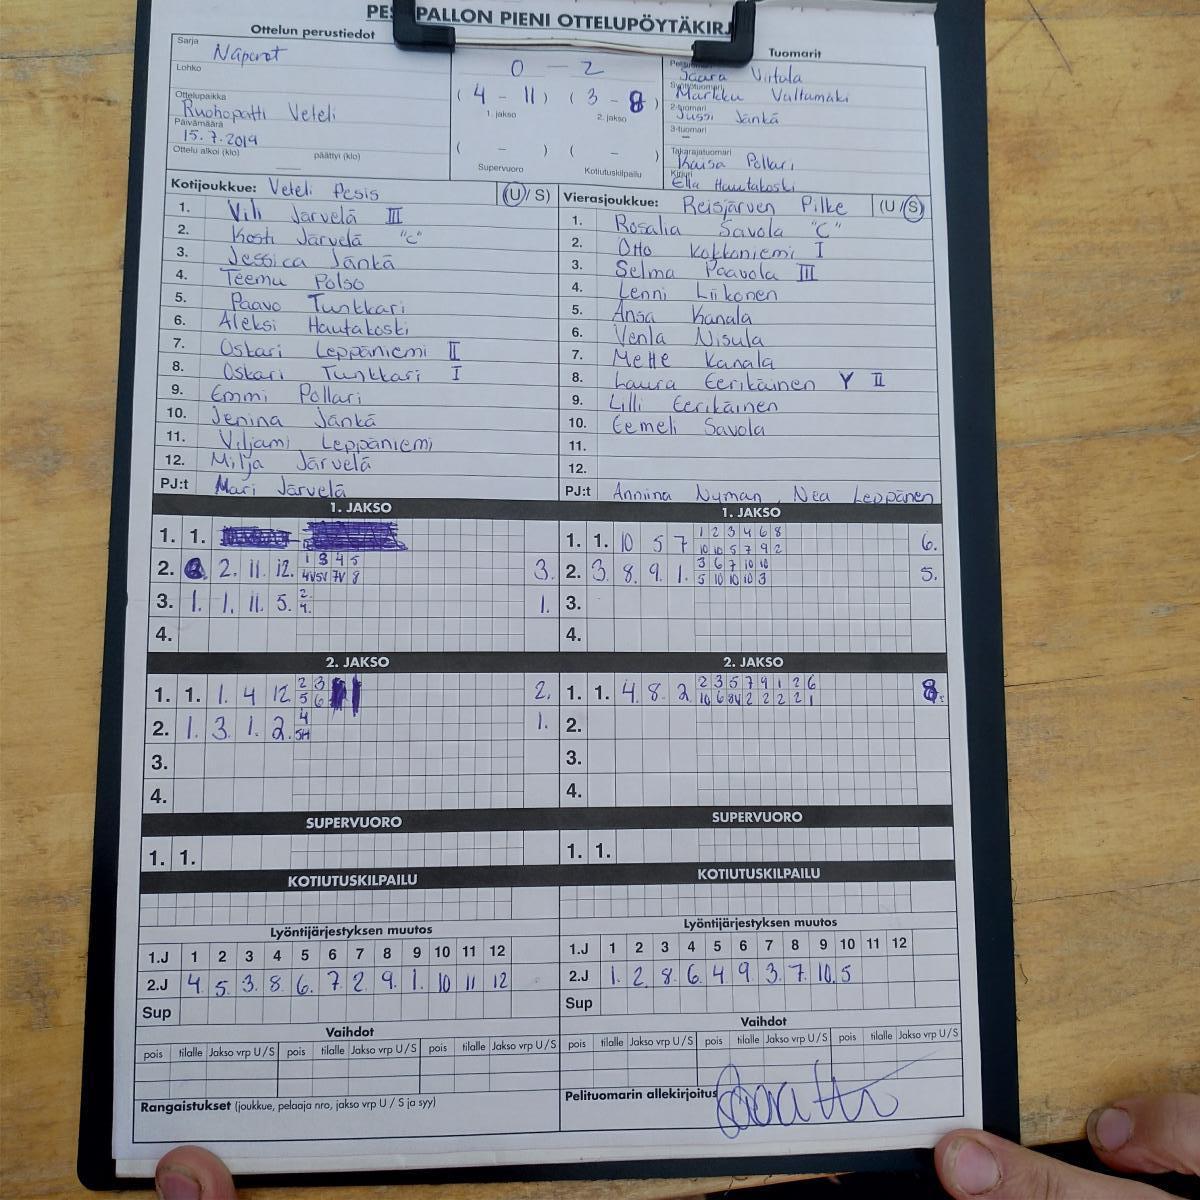 PESÄPALLON PIENI OTTELUPÖYTÄKIRJ
Ottelun perustiedot
Sarja Näperöt
Lohko
Ottelupaikka
Ruohopatti Veteli
Päivämäärä
15.7.2019
Ottelu alkoi (klo) päättyi (klo)
0 - 2
( 4 - 11 ) ( 3 - 8 )
1. jakso 2. jakso
( - ) ( - )
Supervuoro Kotiutuskilpailu
Tuomarit
Saara Virtala
Markku Valtamäki
2-tuomari
Jussi Jänkä
3-tuomari
-
Takarajatuomari
Kaisa Pollari
Kirjuri
Ella Hautakoski
Kotijoukkue: Veteli Pesis (U/S)
1. Vili Järvelä III
2. Kosti Järvelä "C"
3. Jessica Jänkä
4. Teemu Polso
5. Paavo Tunkkari
6. Aleksi Hautakoski
7. Oskari Leppäniemi II
8. Oskari Tunkkari I
9. Emmi Pollari
10. Jenina Jänkä
11. Viljami Leppäniemi
12. Milja Järvelä
PJ:t Mari Järvelä
Vierasjoukkue: Reisjärven Pilke (U/S)
1. Rosalia Savola "C"
2. Otto Kokkoniemi I
3. Selma Paavola III
4. Lenni Liikonen
5. Ansa Kanala
6. Venla Nisula
7. Mette Kanala
8. Laura Eerikäinen Y II
9. Lilli Eerikäinen
10. Eemeli Savola
11.
12.
PJ:t Anniina Nyman, Nea Leppänen
1. JAKSO
1. 1.
2. 2. 11. 12. 1 3 4 5 3.
4V 5V 7V 8
3. 1. 1. 11. 5. 2. 1.
4.
4.
1. JAKSO
1. 1. 10 5 7 1 2 3 4 6 8 6.
10 10 5 7 9 2
2. 3. 8. 9. 1. 3 6 7 10 10 5.
5 10 10 10 3
3.
4.
2. JAKSO
1. 1. 1. 4 12 2 3 2.
5 6
2. 1. 3. 1. 2. 4 1.
5H
3.
4.
2. JAKSO
1. 1. 4. 8. 2 2 3 5 7 9 1 2 6 8.
10 6 8V 2 2 2 2 1
2.
3.
4.
SUPERVUORO
1. 1.
SUPERVUORO
1. 1.
KOTIUTUSKILPAILU
KOTIUTUSKILPAILU
Lyöntijärjestyksen muutos
1.J 1 2 3 4 5 6 7 8 9 10 11 12
2.J 4. 5. 3. 8. 6. 7. 2. 9. 1. 10 11 12
Sup
Lyöntijärjestyksen muutos
1.J 1 2 3 4 5 6 7 8 9 10 11 12
2.J 1. 2. 8. 6. 4 9. 3. 7. 10. 5
Sup
Vaihdot
pois tilalle Jakso vrp U/S pois tilalle Jakso vrp U/S pois tilalle Jakso vrp U/S
Vaihdot
pois tilalle Jakso vrp U/S pois tilalle Jakso vrp U/S pois tilalle Jakso vrp U/S
Rangaistukset (joukkue, pelaaja nro, jakso vrp U / S ja syy)
Pelituomarin allekirjoitus